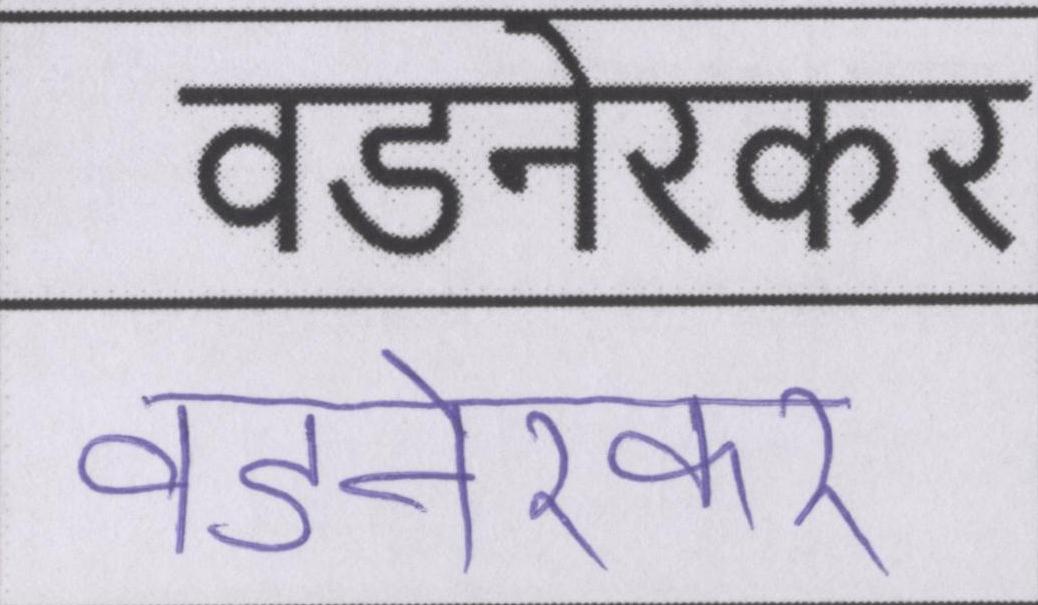 वडनेरकर
वडनेरकर